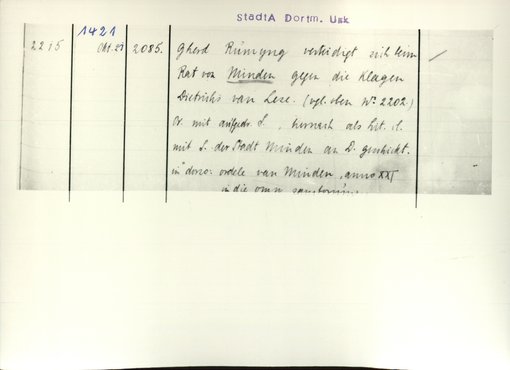 StadtA Dortm. Urk
1421
2215 Okt. 29 2085. Gherd Rümyng verteidigt sich beim
Rat von Minden gegen die Klagen
Dietrichs van Lese. (vgl. oben Nº 2202.)
Or. mit aufgedr. S., hernach als lit. cl.
mit S. der Stadt Minden an D. geschickt.
in dorso: ordele van Minden, anno XXI
in die omn. sanctorum.